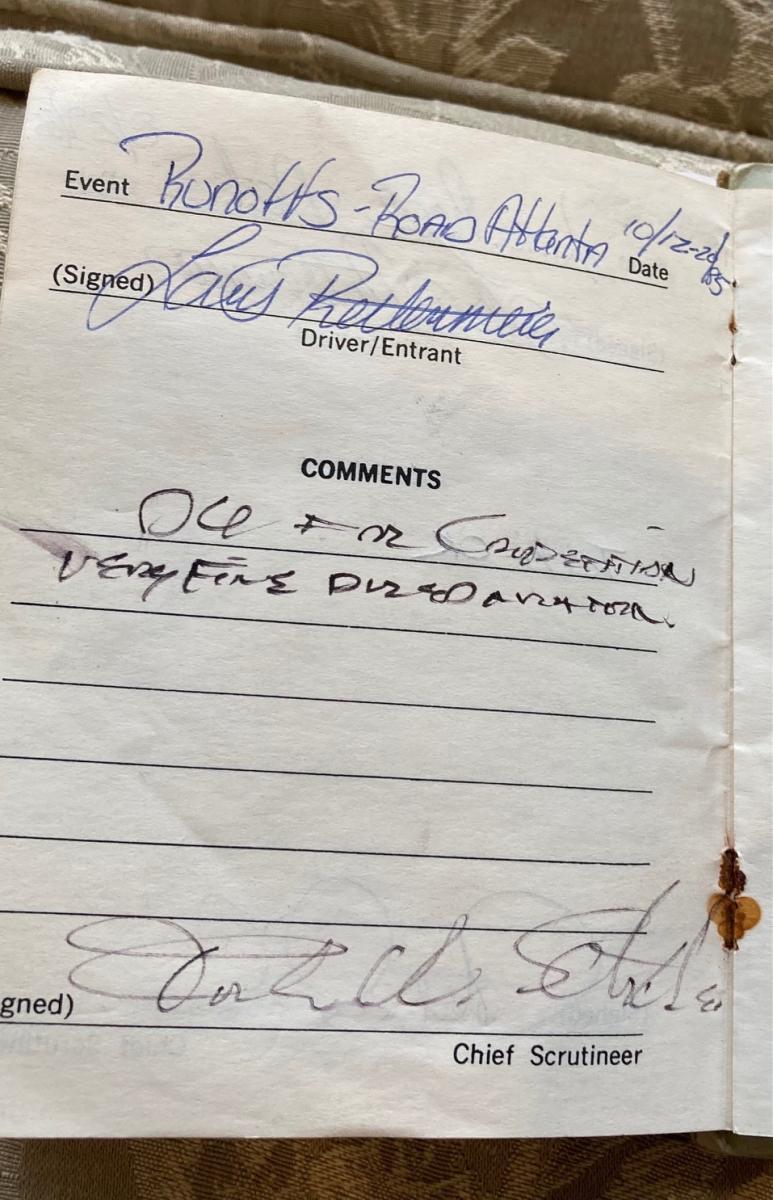 Event Runoffs - Road Atlanta 10/12-20/85
Date
(Signed)
Driver/Entrant
COMMENTS
OK FOR COMPETITION
VERY FINE PREPARATION.
gned)
Chief Scrutineer